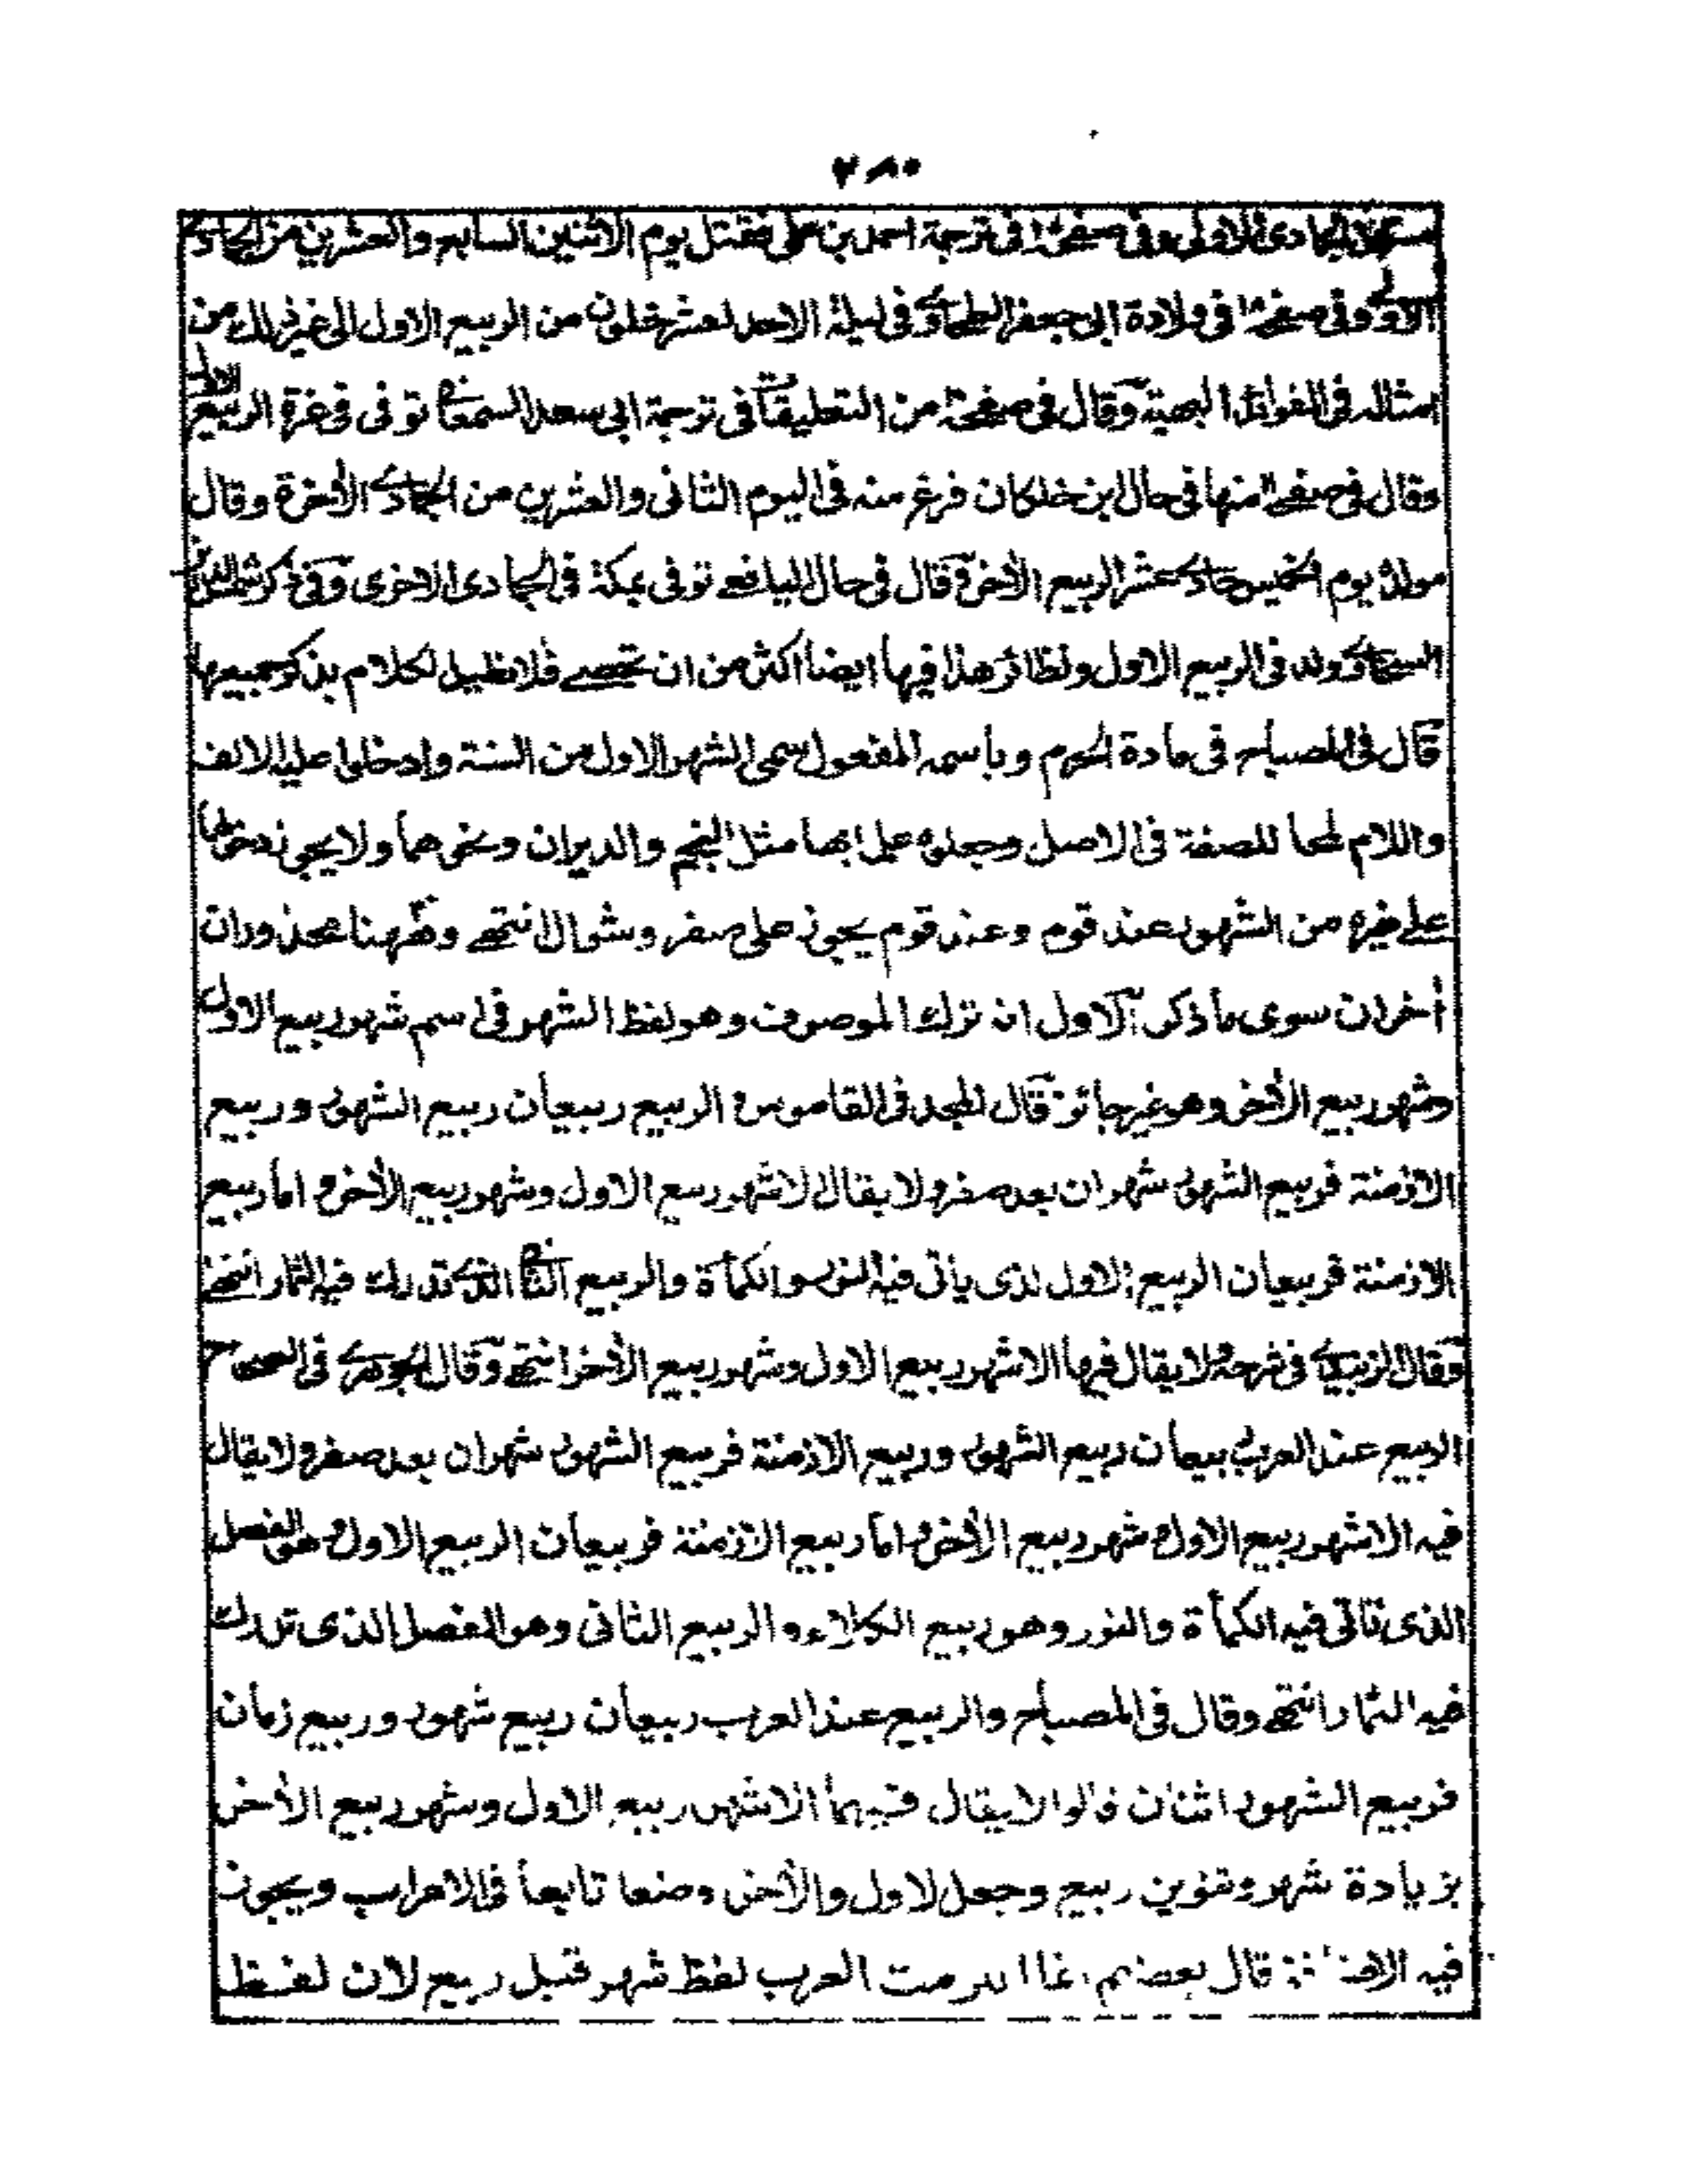 ٢٨٥
الجمادى الاولى وفى صفحة فى ترجمة احمد بن على فقتل يوم الاثنين السابع والعشرين من الجمادى
الاولى وفى صفحة فى ولادة ابى جعفر الطحاوى فى ليلة الاحد لعشر خلون من الربيع الاول الى غير ذلك من
امثاله فى الفوائد البهية وقال فى صفحة من التعليقات فى ترجمة ابى سعد السمعانى توفى فى غرة الربيع الاول
وقال فى صفحة منها فى حال ابن خلكان فرغ منه فى اليوم الثانى والعشرين من الجمادى الأخرة وقال
مولده يوم الخميس حادى عشر الربيع الأخر وقال فى حال اليافعى توفى بمكة فى الجمادى الاخرى وفى ذكر شمس الدين
السخاوى ولد فى الربيع الاول ونظائر هذا فيها ايضا اكثر من ان تحصى فلا نطيل الكلام بذكر جميعها
قال فى المصباح فى مادة الحرم وباسم المفعول سمى الشهر الاول من السنة وادخلوا عليه الالف
واللام لمحا للصفة فى الاصل وجعلوه علما بهما مثل النجم والدبران ونحوهما ولا يجوز دخولهما
على غيره من الشهور عند قوم وعند قوم يجوز على صفر وشوال انتهى وههنا محذوران
أخران سوى ما ذكر الاول ان ترك الموصوف وهو لفظ الشهر فى اسم شهر ربيع الاول
وشهر ربيع الأخر وهو غير جائز قال المجد فى القاموس الربيع ربيعان ربيع الشهور وربيع
الازمنة فربيع الشهور شهران بعد صفر ولا يقال الا شهر ربيع الاول وشهر ربيع الأخر واما ربيع
الازمنة فربيعان الربيع الاول الذى يأتى فيه النور والكمأة والربيع الثانى الذى تدرك فيه الثمار انتهى
وقال الزبيدى فى شرحه ولا يقال فيها الا شهر ربيع الاول وشهر ربيع الأخر انتهى وقال الجوهرى فى الصحاح
الربيع عند العرب ربيعان ربيع الشهور وربيع الازمنة فربيع الشهور شهران بعد صفر ولا يقال
فيه الا شهر ربيع الاول وشهر ربيع الأخر واما ربيع الازمنة فربيعان الربيع الاول وهو الفصل
الذى تأتى فيه الكمأة والنور وهو ربيع الكلاء والربيع الثانى وهو الفصل الذى تدرك
فيه الثمار انتهى وقال فى المصباح والربيع عند العرب ربيعان ربيع شهور وربيع زمان
فربيع الشهور اثنان قالوا لا يقال فيهما الا شهر ربيع الاول وشهر ربيع الأخر
بزيادة شهر وتنوين ربيع وجعل الاول والأخر وصفا تابعا فى الاعراب ويجوز
فيه الاضافة قال بعضهم انما التزمت العرب لفظ شهر قبل ربيع لان لفظ